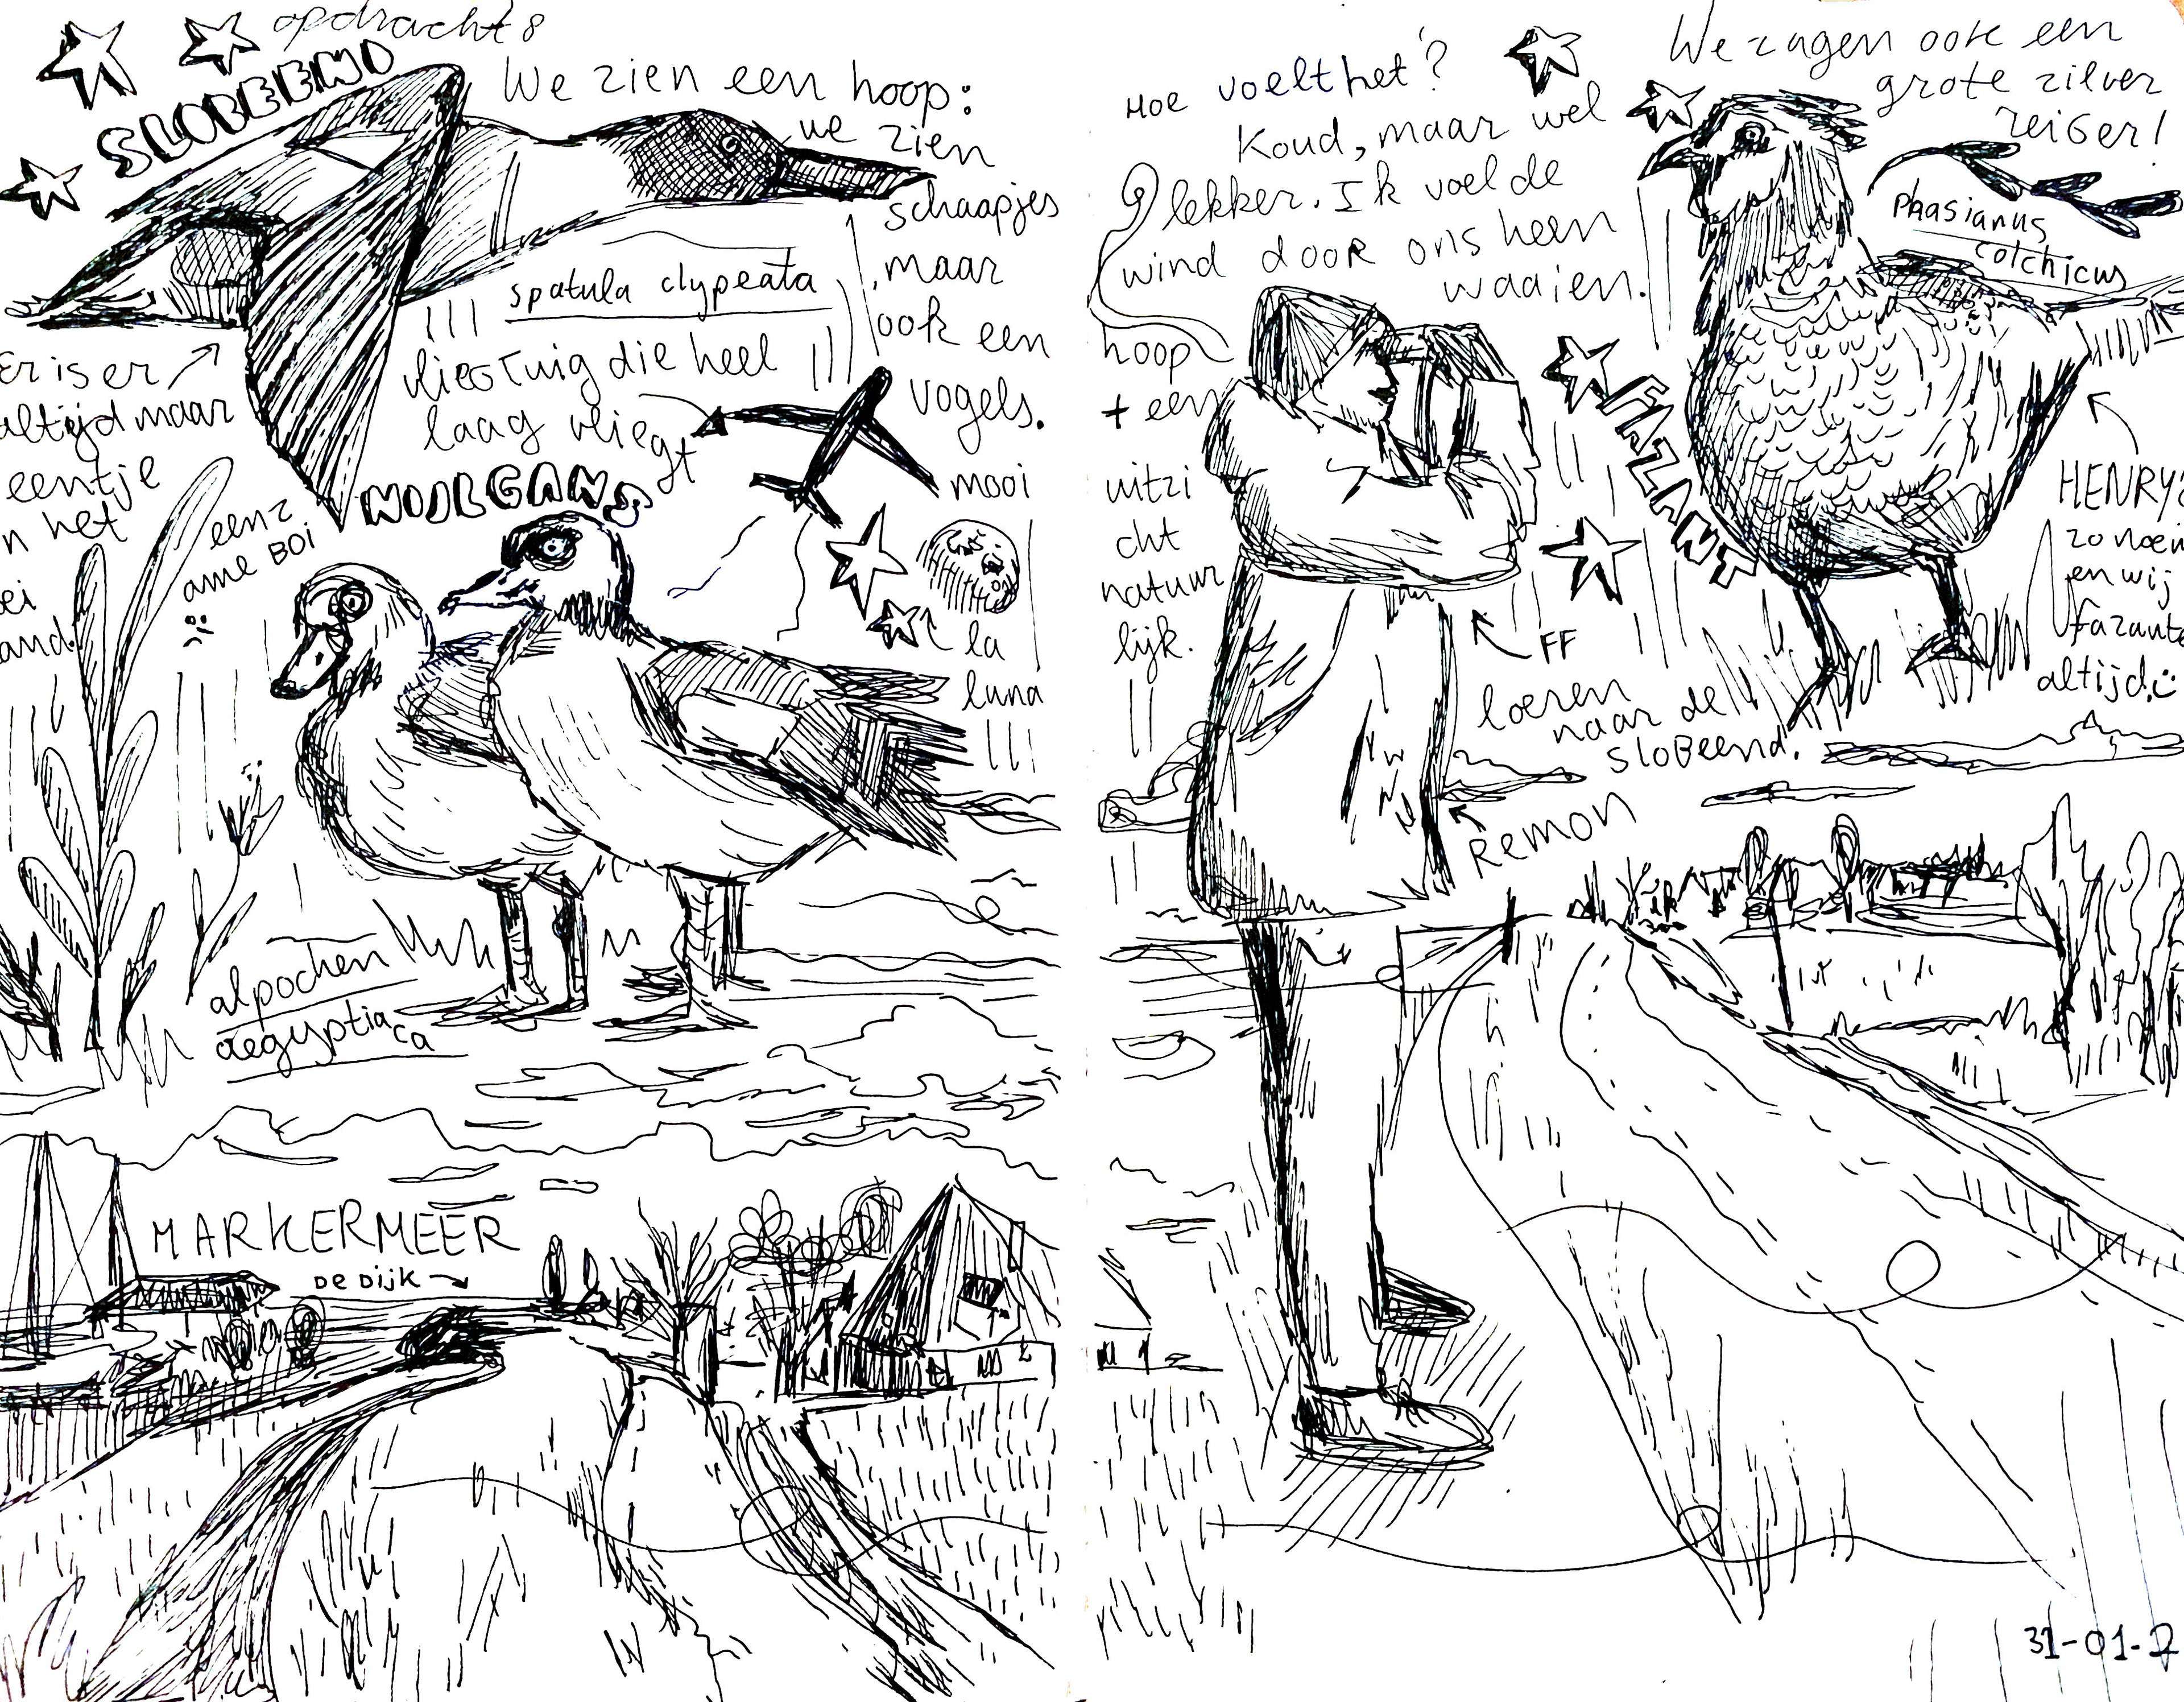 opdracht 8
SLOBEEND
We zien een hoop:
we zien
schaapjes
maar
ook een
vogels.
spatula clypeata
vliegtuig die heel
laag vliegt
Er is er
altijd maar
eentje
n het
ei
and.
eenz
ame BOI
NIJLGANS
mooi
la
luna
alpochen
aegyptiaca
MARKERMEER
DE DIJK
Hoe voelt het?
Koud, maar wel
lekker. Ik voel de
wind door ons heen
waaien.
hoop
+ een
uitzi
cht
natuur
lijk.
FF
loeren
naar de
slobeend.
REMON
We zagen ook een
grote zilver
reiger!
phasianus
colchicus
FAZANT
HENRY
zo noem
en wij
fazant
altijd
31-01-2